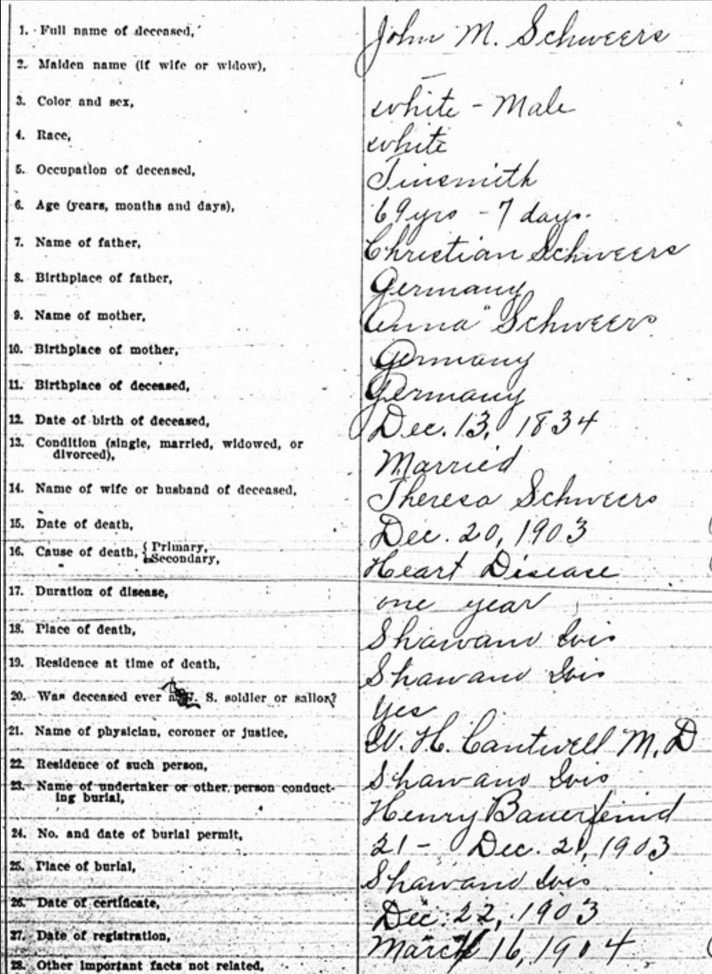 1. Full name of deceased, John M. Schweers
2. Maiden name (if wife or widow), —
3. Color and sex, white - Male
4. Race, white
5. Occupation of deceased, Tinsmith
6. Age (years, months and days), 69 yrs - 7 days.
7. Name of father, Christian Schweers
8. Birthplace of father, Germany
9. Name of mother, Anna Schweers
10. Birthplace of mother, Germany
11. Birthplace of deceased, Germany
12. Date of birth of deceased, Dec. 13, 1834
13. Condition (single, married, widowed, or
divorced), Married
14. Name of wife or husband of deceased, Theresa Schweers
15. Date of death, Dec. 20, 1903
16. Cause of death, { Primary,
Secondary, Heart Disease
17. Duration of disease, one year
18. Place of death, Shawano Wis
19. Residence at time of death, Shawano Wis
20. Was deceased ever a U. S. soldier or sailor? Yes
21. Name of physician, coroner or justice, W. H. Cantwell M. D
22. Residence of such person, Shawano Wis
23. Name of undertaker or other person conduct-
ing burial, Henry Bauerfeind
24. No. and date of burial permit, 21 - Dec. 21, 1903
25. Place of burial, Shawano Wis
26. Date of certificate, Dec. 22, 1903
27. Date of registration, March 16, 1904
28. Other important facts not related,